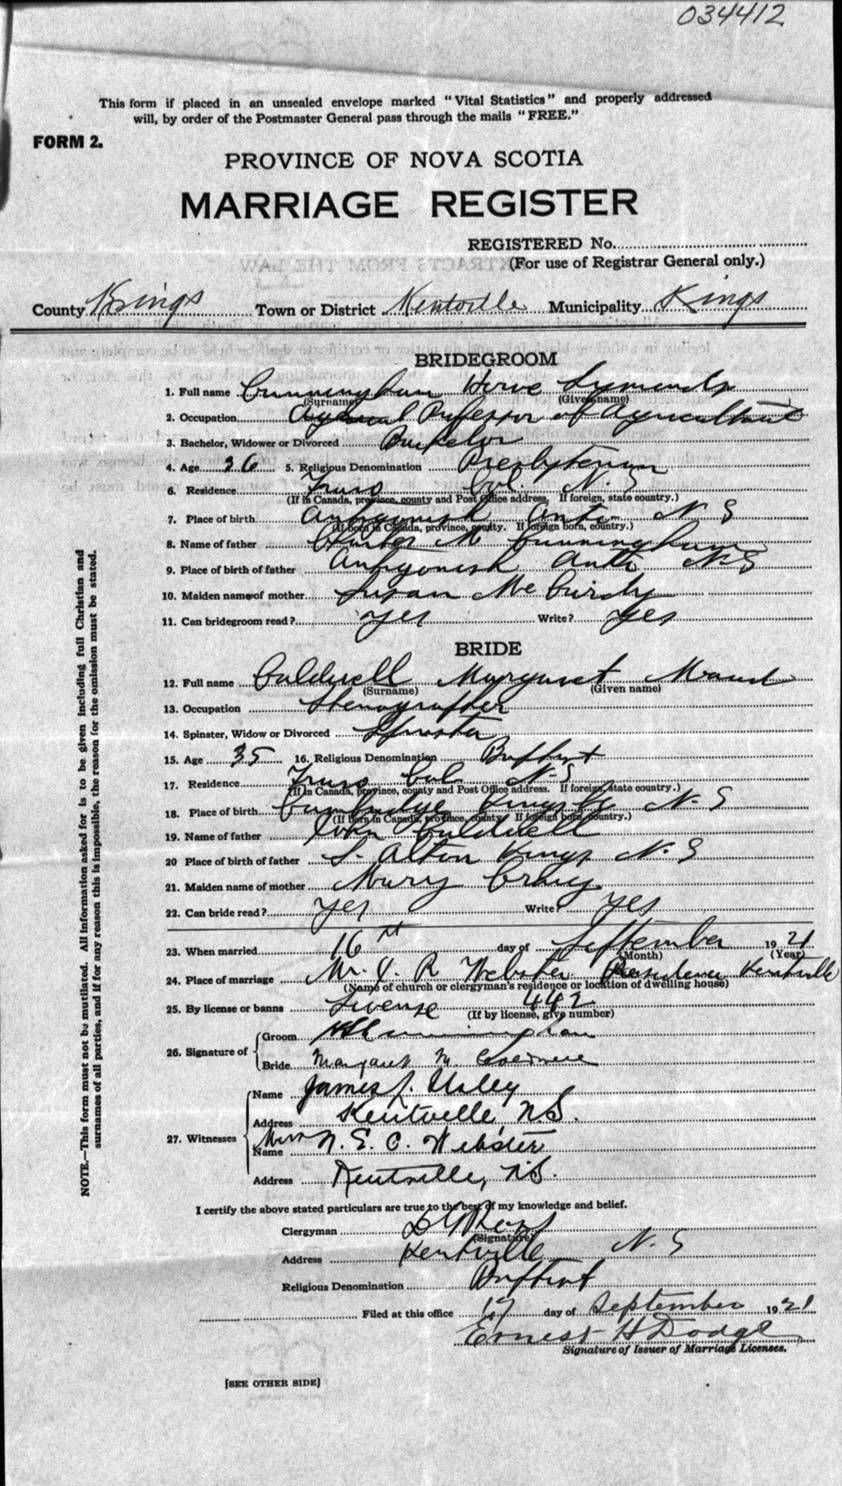 034412
This form if placed in an unsealed envelope marked "Vital Statistics" and properly addressed
will, by order of the Postmaster General pass through the mails "FREE."
FORM 2.
PROVINCE OF NOVA SCOTIA
MARRIAGE REGISTER
REGISTERED No.
(For use of Registrar General only.)
County Kings Town or District Kentville Municipality Kings
BRIDEGROOM
1. Full name Cunningham
(Surname) (Given name)
2. Occupation Professor of Agriculture
3. Bachelor, Widower or Divorced Bachelor
4. Age 36 5. Religious Denomination Presbyterian
6. Residence Truro Col. N. S
(If in Canada, province, county and Post Office address. If foreign, state country.)
7. Place of birth Antigonish Anti N S
(If born in Canada, province, county. If foreign born, country.)
8. Name of father M. Cunningham
9. Place of birth of father Antigonish Anti N S
10. Maiden name of mother Susan McCurdy
11. Can bridegroom read? yes Write? yes
BRIDE
12. Full name Caldwell Margaret Maud
(Surname) (Given name)
13. Occupation Stenographer
14. Spinster, Widow or Divorced Spinster
15. Age 35 16. Religious Denomination Baptist
17. Residence Truro Col N-S
(If in Canada, province, county and Post Office address. If foreign, state country.)
18. Place of birth Cambridge Kings Co N-S
(If born in Canada, province, county. If foreign born, country.)
19. Name of father John Caldwell
20 Place of birth of father S. Alton Kings N. S
21. Maiden name of mother Mary
22. Can bride read? yes Write? yes
23. When married 16 day of September 1921
(Month) (Year)
24. Place of marriage Mr. J. R Webster Residence Kentville
(Name of church or clergyman's residence or location of dwelling house)
25. By license or banns License 442
(If by license, give number)
26. Signature of Groom Cunningham
Bride Margaret M.
27. Witnesses
Name James J.
Address Kentville, N.S.
Name N. E. C. Webster
Address Kentville, N.S.
I certify the above stated particulars are true to the best of my knowledge and belief.
Clergyman
(Signature)
Address Kentville N. S
Religious Denomination Baptist
Filed at this office 17 day of September 1921
Ernest H Dodge
Signature of Issuer of Marriage Licenses.
[SEE OTHER SIDE]
NOTE.—This form must not be mutilated. All information asked for is to be given including full Christian and
surnames of all parties, and if for any reason this is impossible, the reason for the omission must be stated.